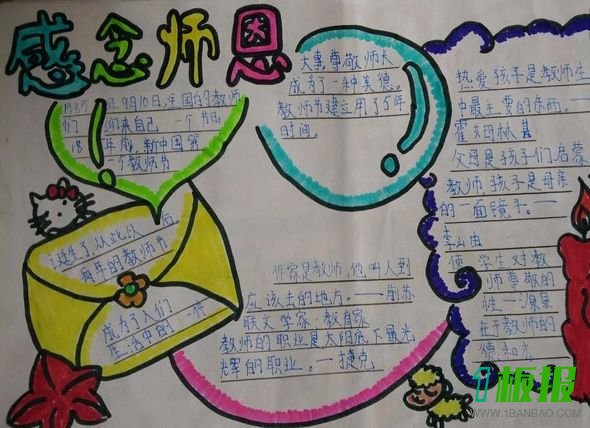 感念师恩
1985年9月10日,全国的教师
们 迎来自己 一个节日。
18年成,新中国第
一个教师节
诞生了,从此以后
每年的教师节
成为了人们
生活中的一种
大事,尊敬师长
成为了一种美德。
教师节建立用了5年
时间。
作家是教师,他叫人到
应该去的地方。——前苏
联文学家、教育家
教师的职业是太阳底下最光
辉的职业。——捷克
热爱孩子是教师生
中最主要的东西。——
霍姆林基
父母是孩子们启蒙
教师,孩子是母亲
的一面镜子。——
李山由
使学生对教
师尊敬的
惟一源泉
在于教师的
德和才
1板报
WWW.1BANBAO.COM